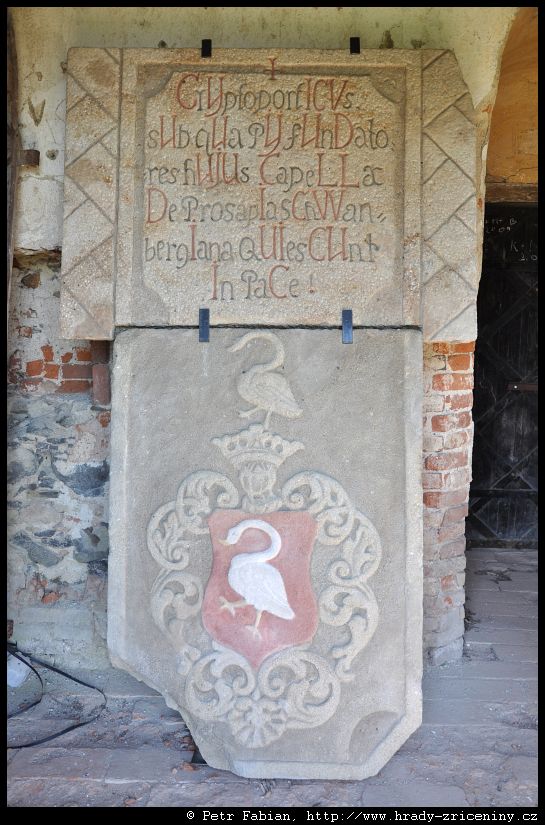 CrYptoportICVs
sUb qUa pIj fUnDato
res hUIUs CapeLLæ
De Prosapia SchWan=
bergIana QUIesCUnt
In PaCe!
© Petr Fabian, http://www.hrady-zriceniny.cz